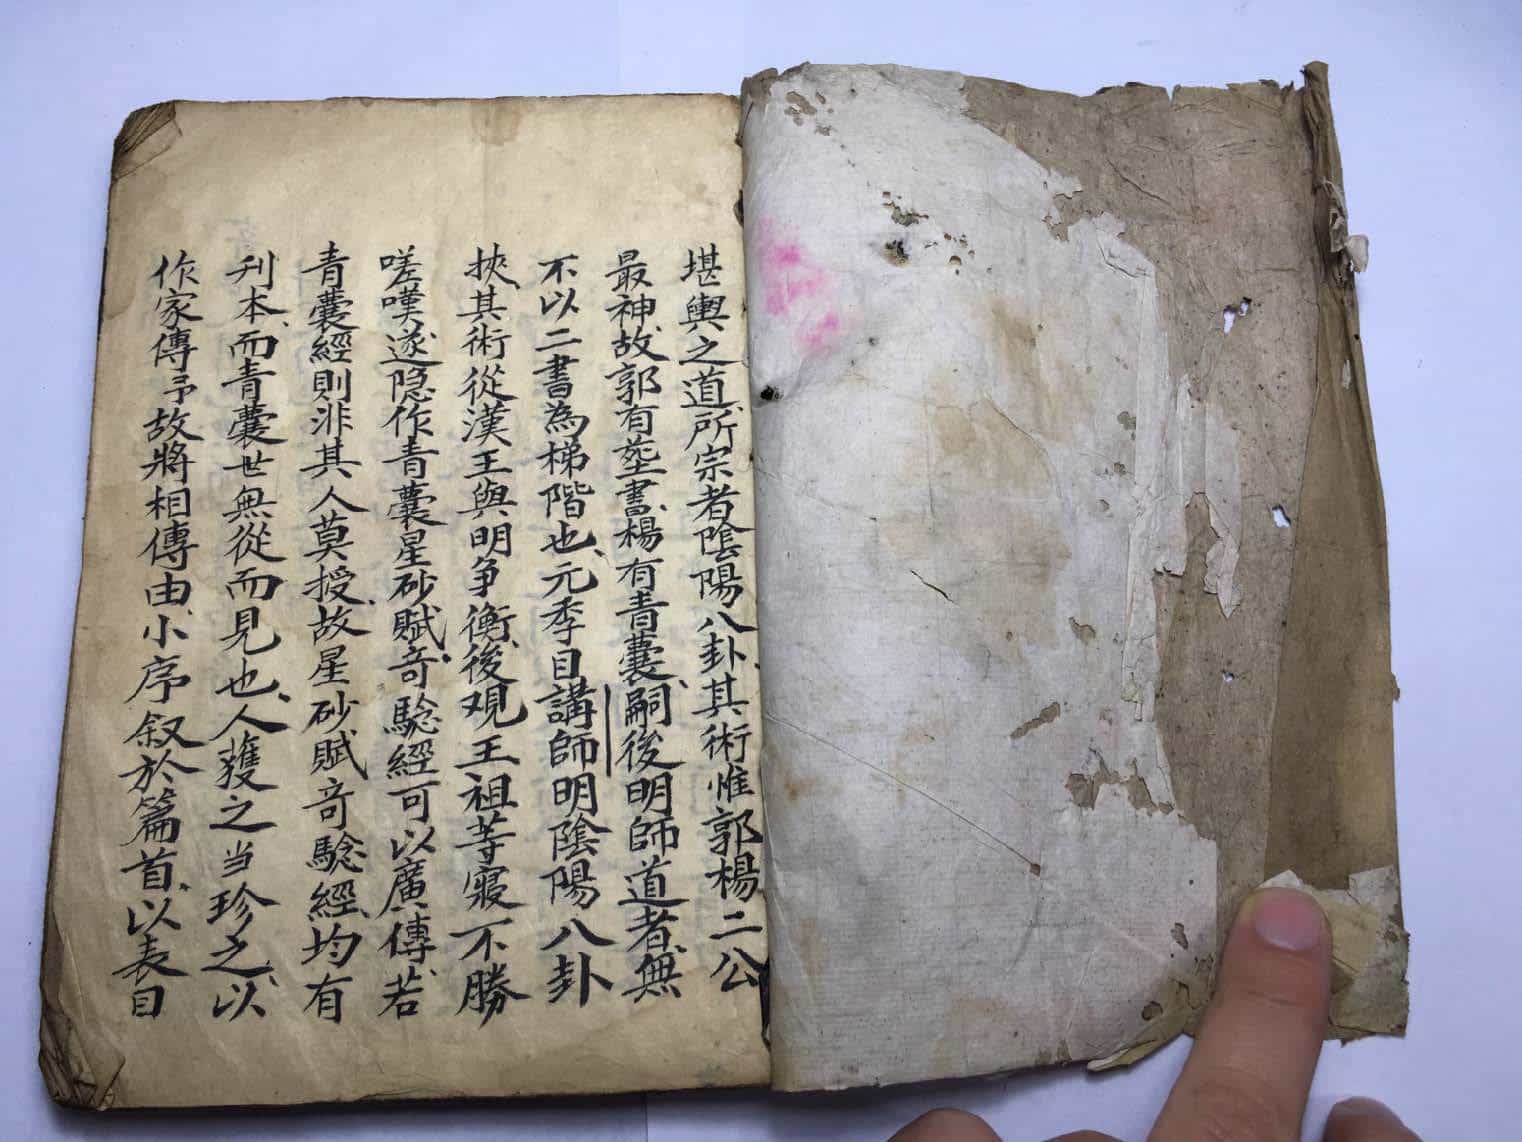 堪輿之道所宗者陰陽八卦其術惟郭楊二公
最神故郭有塟書楊有青囊嗣後明師道者無
不以二書為梯階也元季目講師明陰陽八卦
挾其術從漢王與明争衡後观王祖等寢不勝
嗟嘆遂隐作青囊星砂賦竒騐經可以廣傳若
青囊經則非其人莫授故星砂賦竒騐經均有
刋本而青囊世無從而見也人獲之当珍之以
作家傳予故將相傳由小序叙於篇首以表目